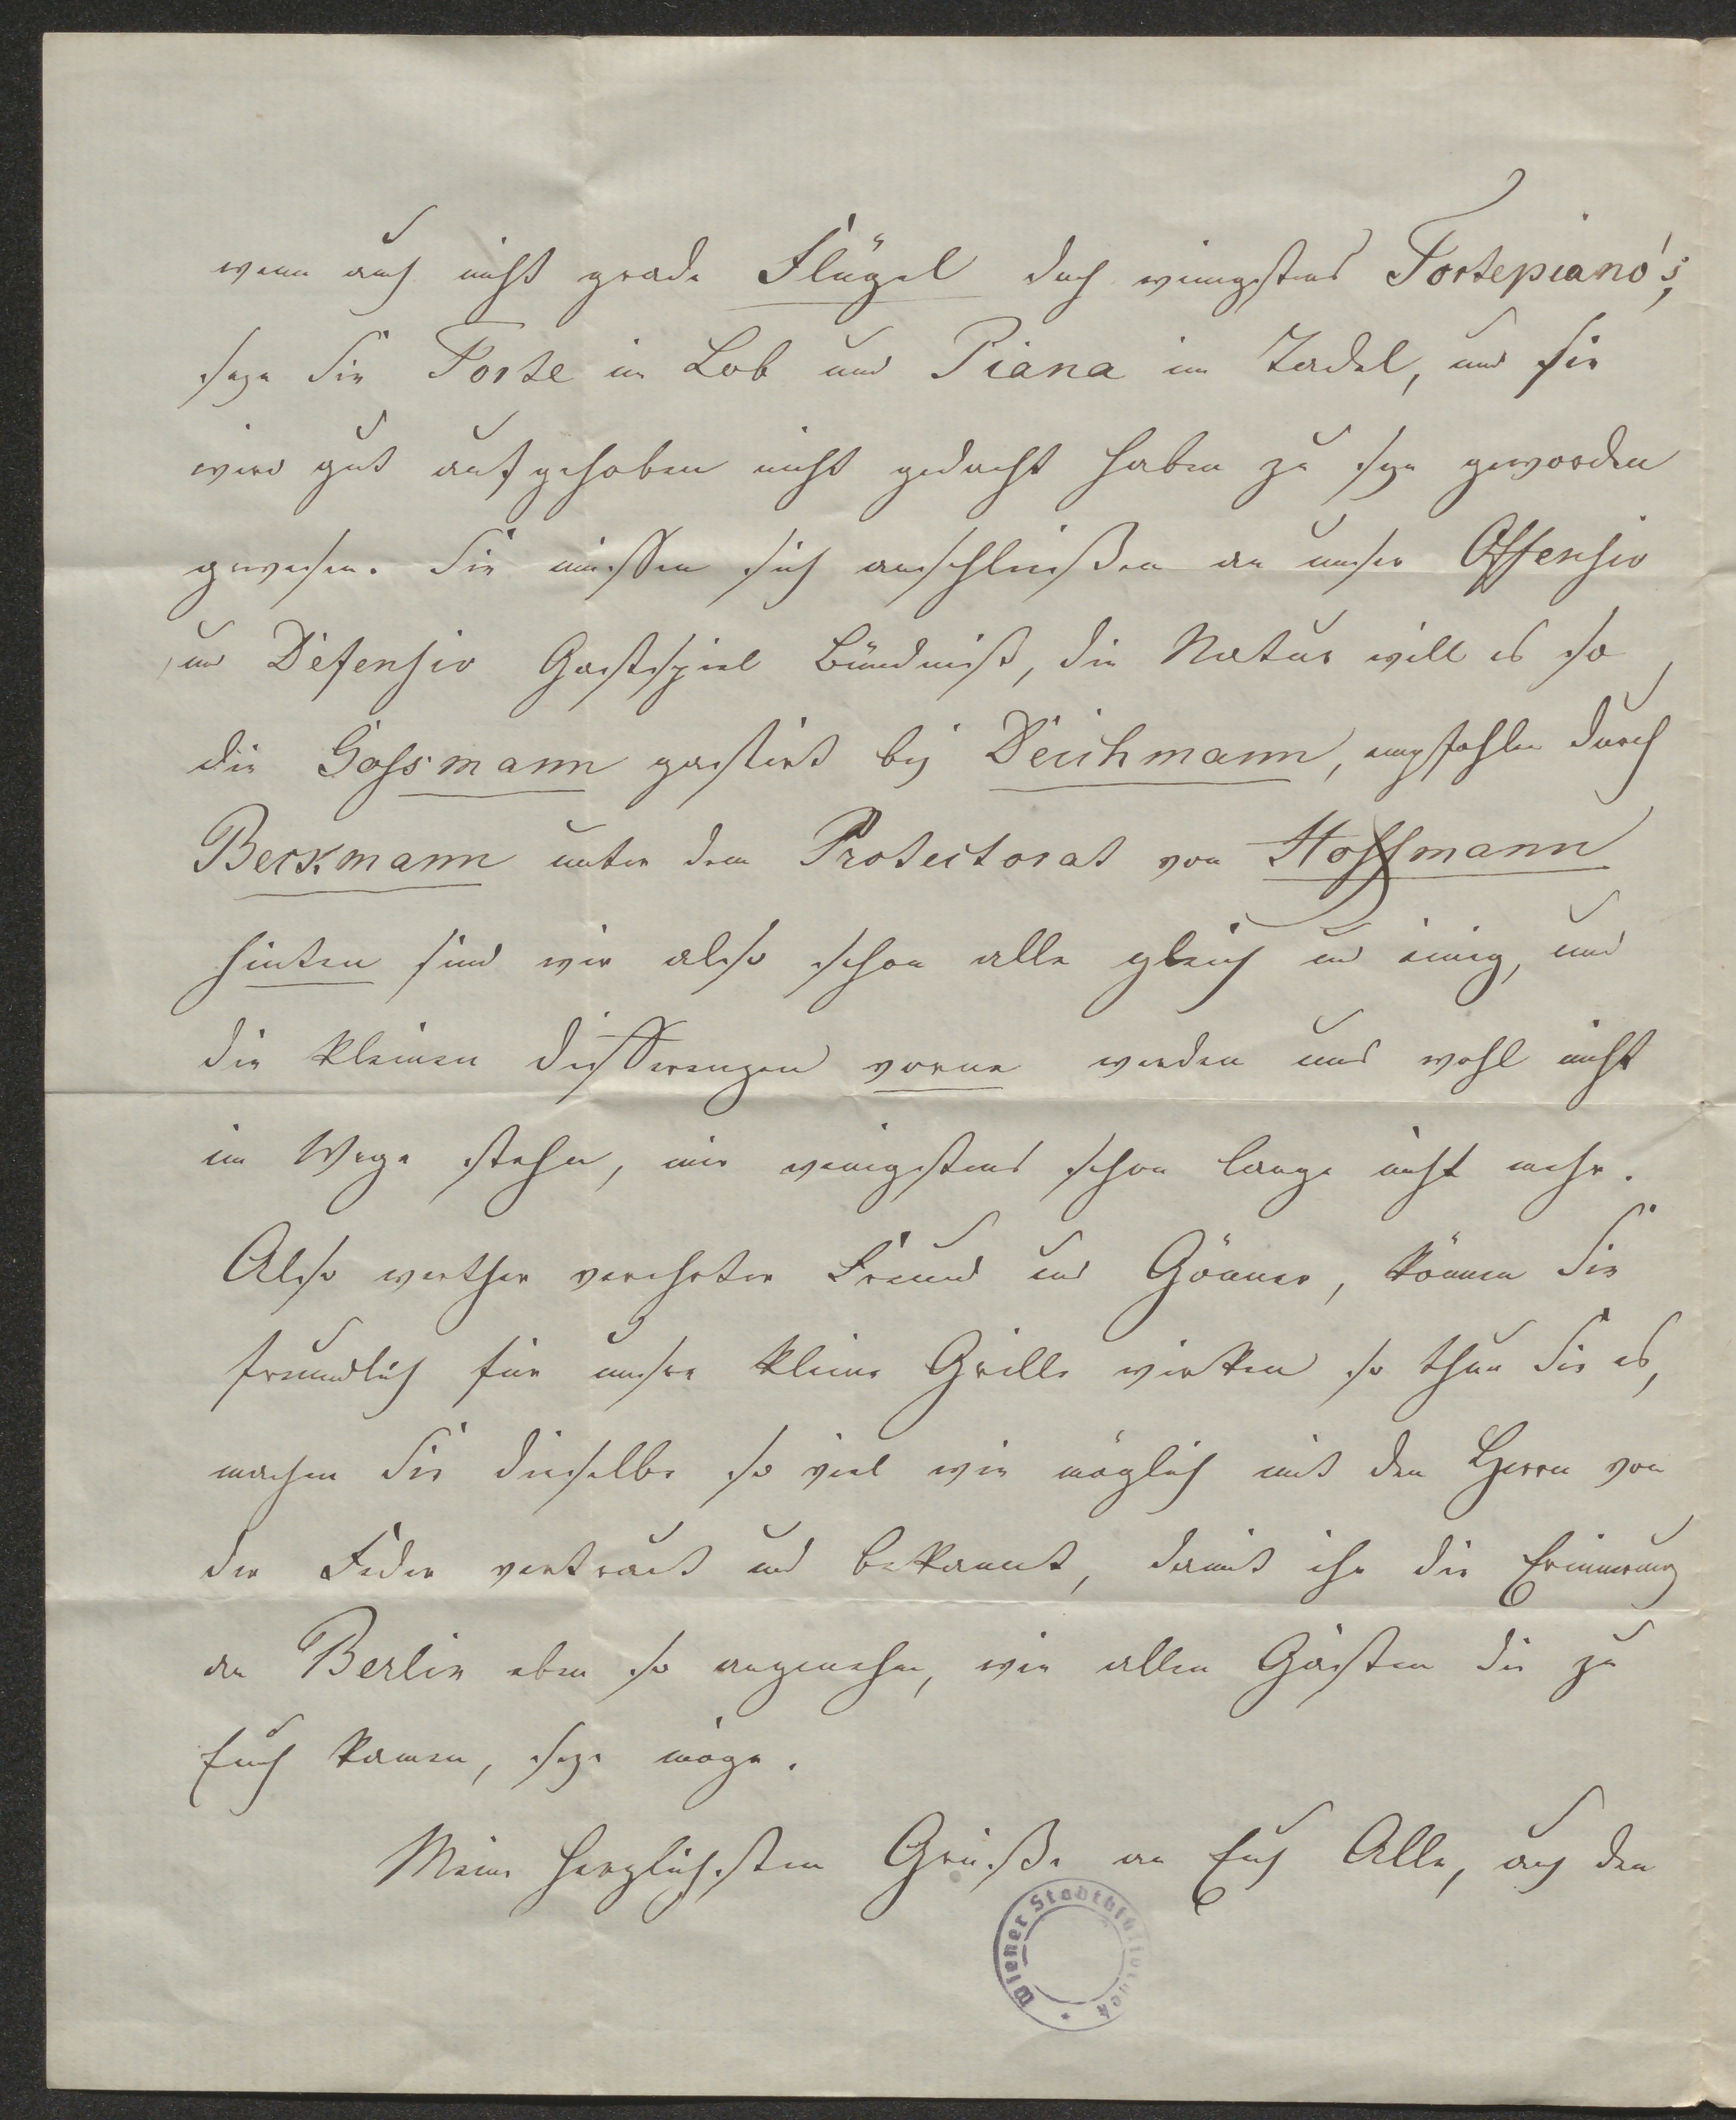 wenn auch nicht grade Flügel doch wenigstens Fortepiano's,
seye Sie Forte im Lob und Piana im Tadel, und sie
wird gut aufgehoben nicht gedacht haben zu seye geworden
gewesen. Sie müssen sich anschließen an unser Offensiv
und Defensiv Gastspiel Bündniß, die Natur will es so,
die Gossmann gastirt bej Deichmann, empfohlen durch
Beckmann unter dem Protectorat von Hoffmann
hinten sind wir also schon alle gleich und einig, und
die kleinen Differenzen vorne werden uns wohl nicht
im Wege stehen, mir wenigstens schon lange nicht mehr.
Also werther verehrter Freund und Gönner, können Sie
freundlich für unsre kleine Grille wirken so thun Sie es,
machen Sie dieselbe so viel wie möglich mit den Herrn von
der Feder vertraut und bekannt, damit ihr die Erinnerung
an Berlin eben so angenehm, wie allen Gästen die zu
Euch kamen, seye möge.
Meine herzlichsten Grüße an Euch Alle, auch den
Wiener Stadtbibliothek